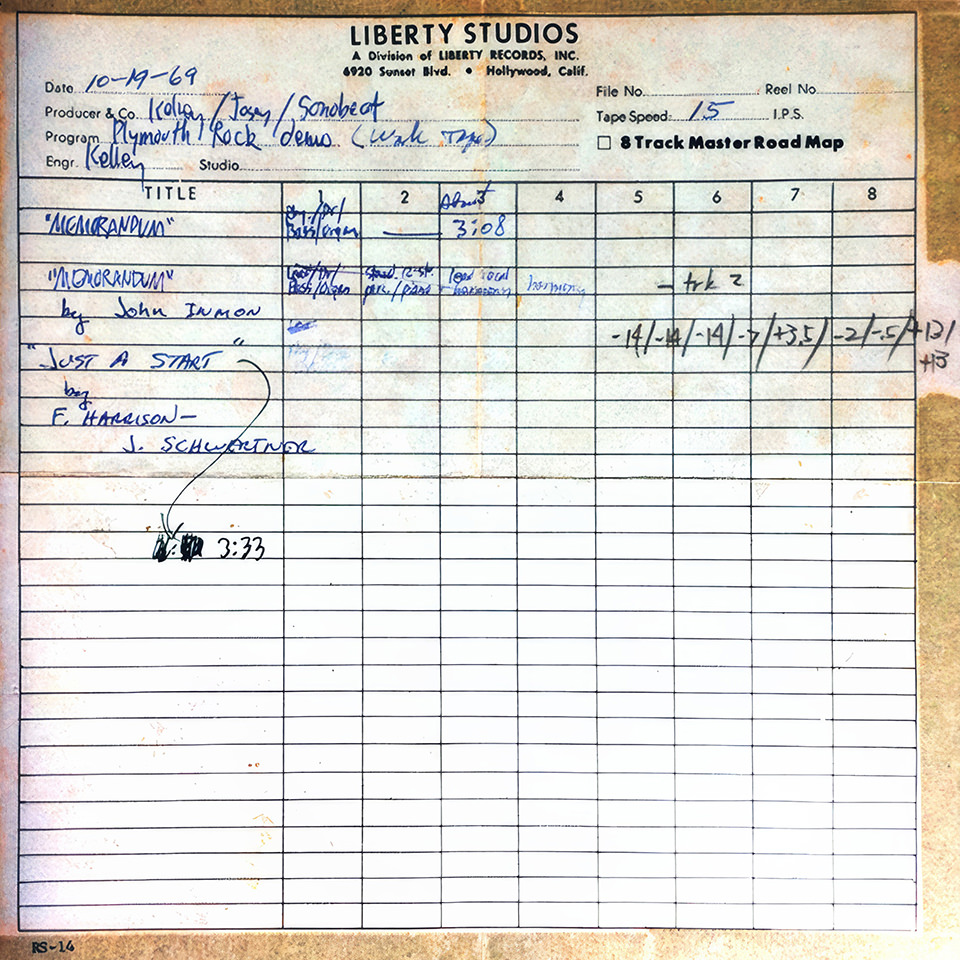 LIBERTY STUDIOS
A Division of LIBERTY RECORDS, INC.
6920 Sunset Blvd. • Hollywood, Calif.
Date 10-19-69
File No. Reel No.
Producer & Co. / Josey / Sonobeat
Tape Speed: 15 I.P.S.
Program Plymouth Rock demo (Work Tape)
8 Track Master Road Map
Engr. Kelley Studio
TITLE 1 2 3 4 5 6 7 8
About
"MEMORANDUM" Bass/Organ — 3:08
"MEMORANDUM" /Dr/ 12-st. lead vocal
Bass/Organ perc./piano harmony - trk 2
by John INMON
-14/-14/-14/-7/+3.5/-2/-.5/+13/
+13
"JUST A START"
by
F. HARRISON-
J. SCHWERTNER
3:33
RS-14